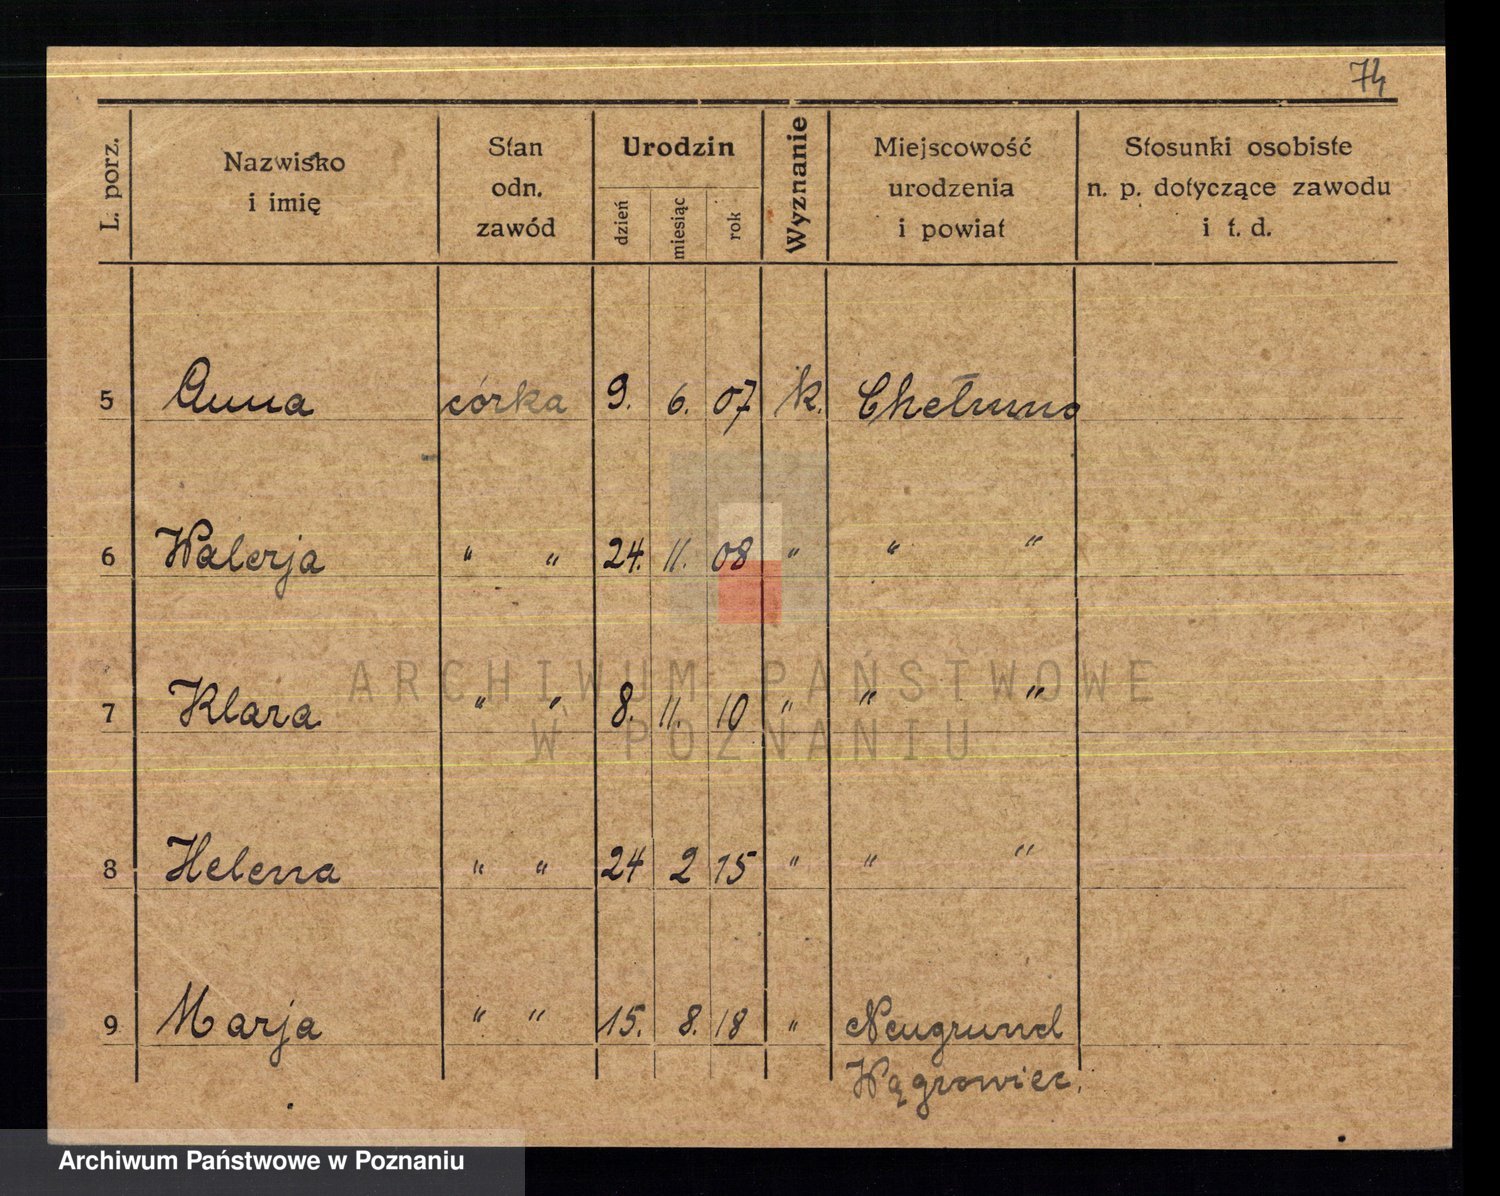 74
L. porz.
Nazwisko
i imię
Stan
odn.
zawód
Urodzin
dzień
miesiąc
rok
Wyznanie
Miejscowość
urodzenia
i powiat
Stosunki osobiste
n. p. dotyczące zawodu
i t. d.
5 Anna córka 9. 6. 07 k. Chełmno
6 Walerja " " 24. 11. 08 " " "
7 Klara " " 8. 11. 10 " " "
8 Helena " " 24 2 15 " " "
9 Marja " " 15. 8. 18 " Neugrund
Wągrowiec.
ARCHIWUM PAŃSTWOWE
W POZNANIU
Archiwum Państwowe w Poznaniu